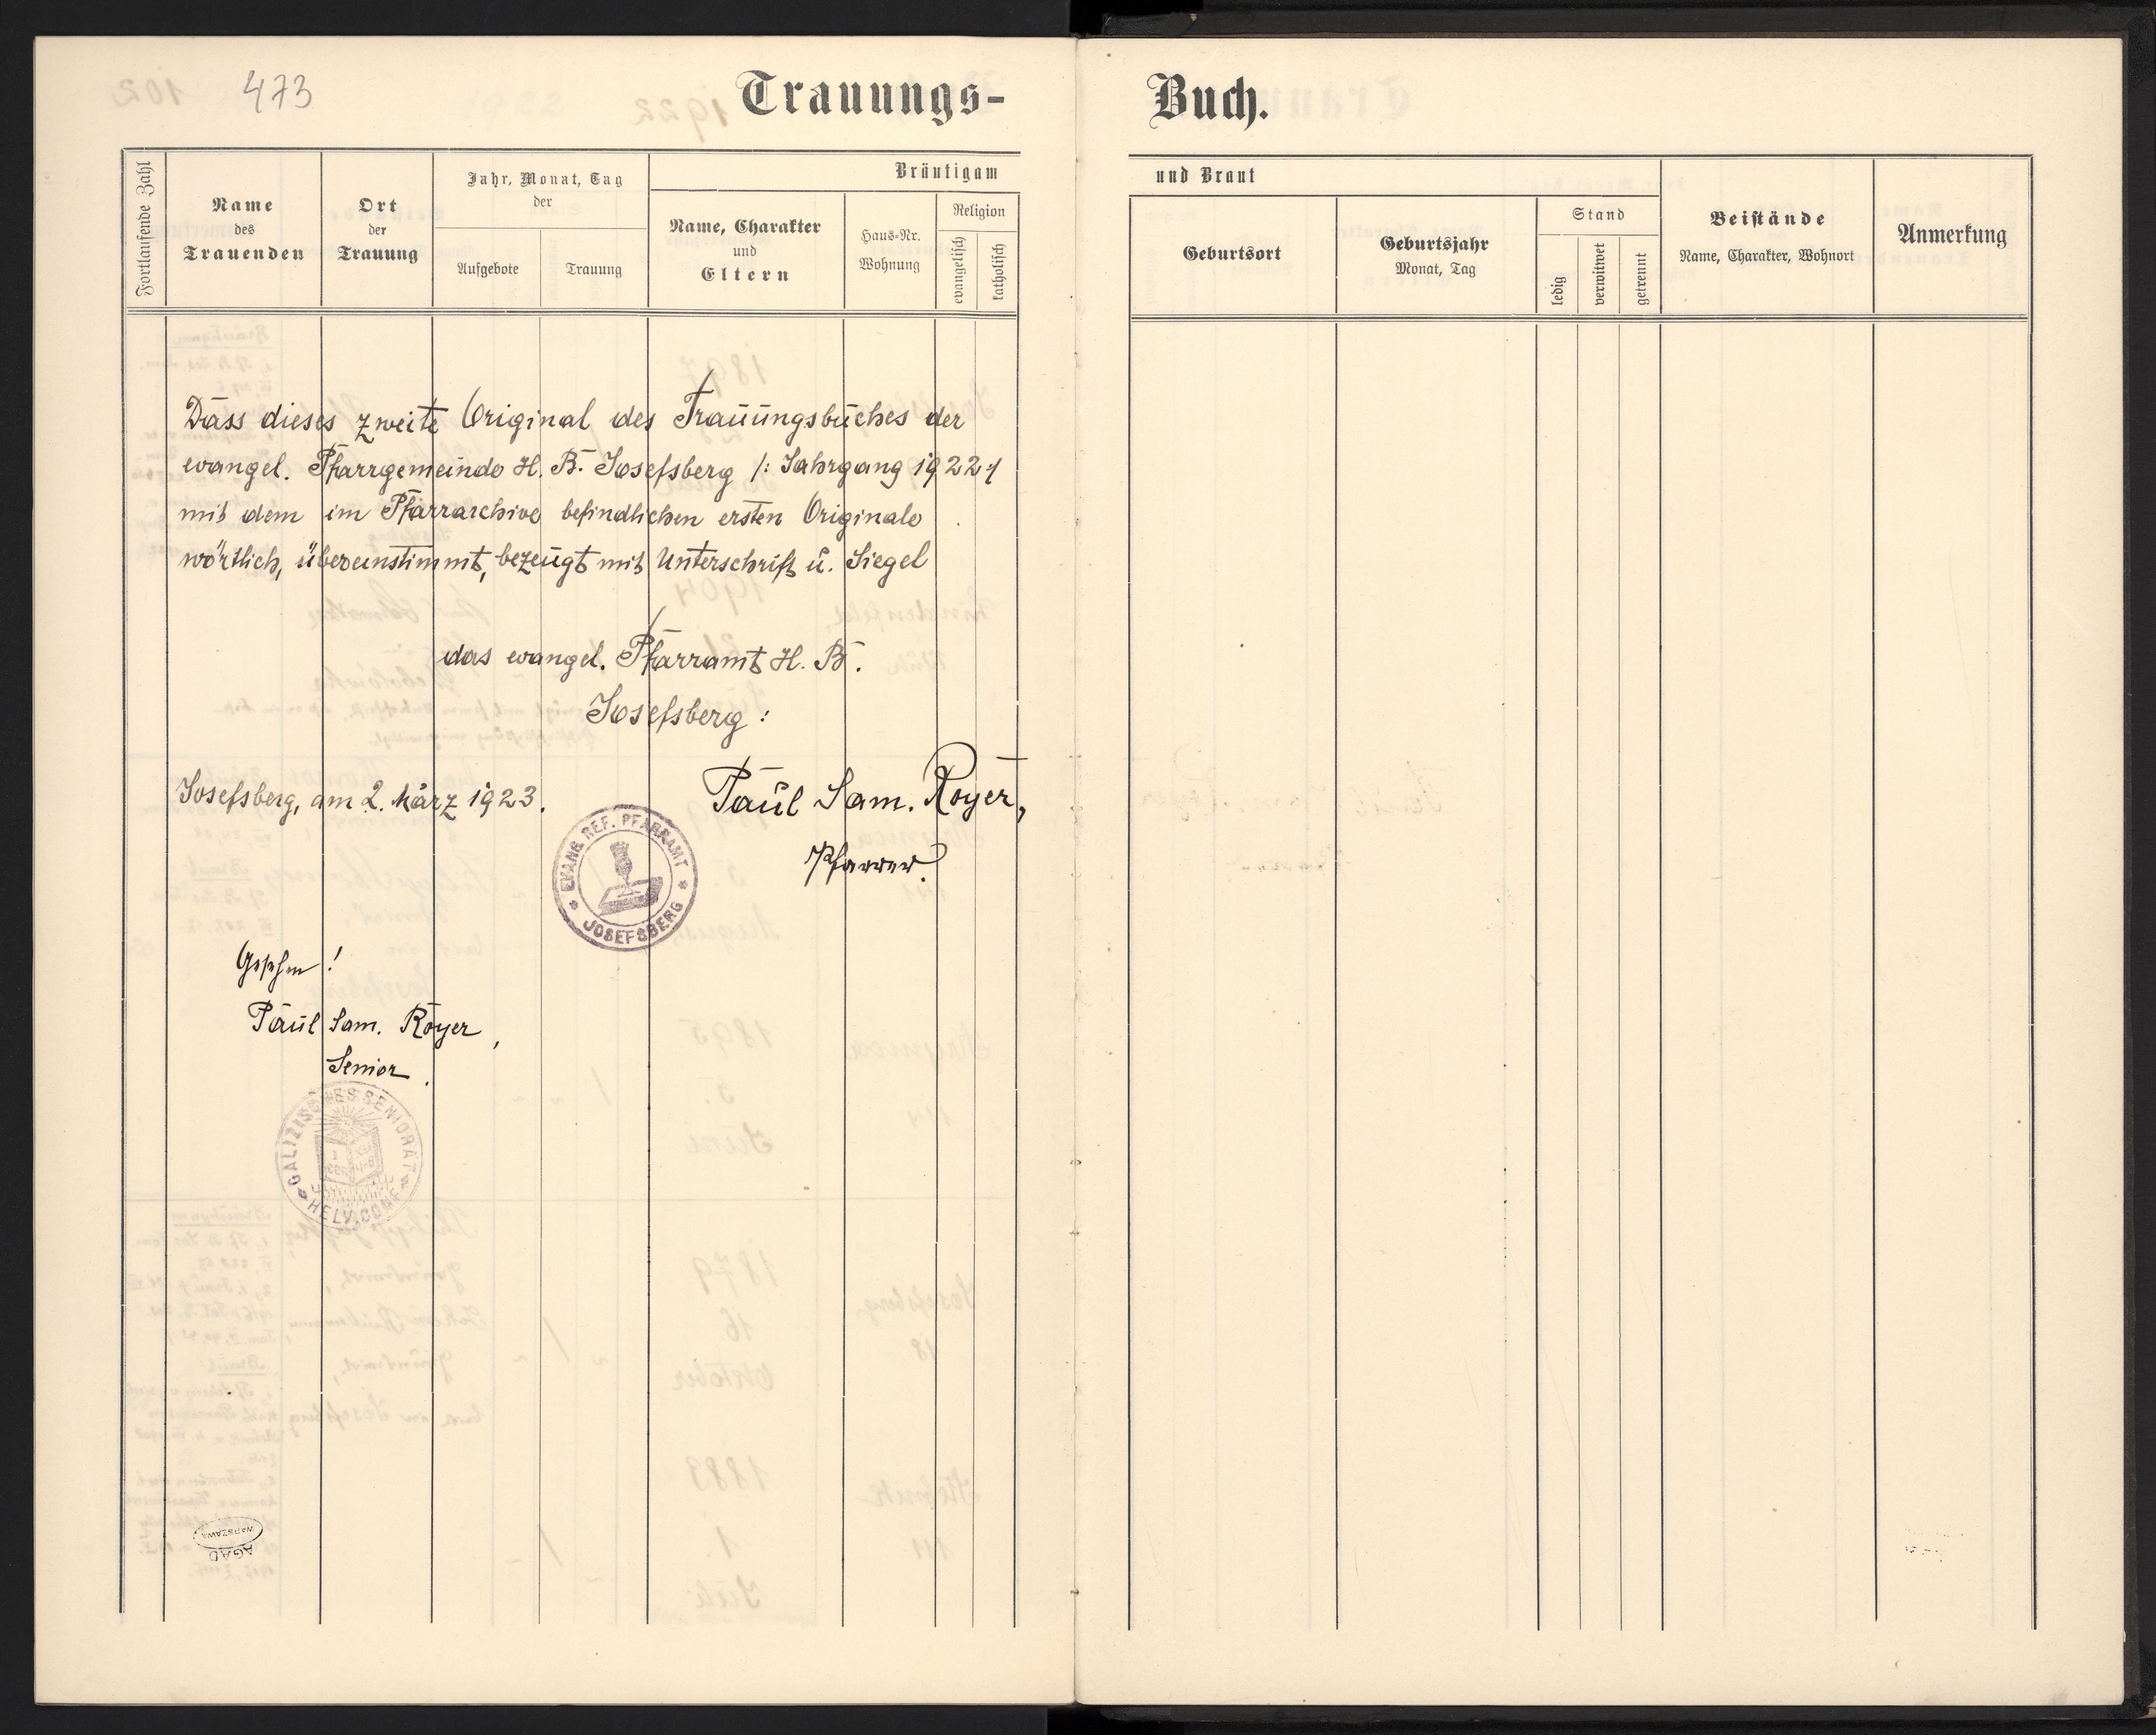 473
Trauungs-
Buch.
Fortlaufende Zahl
Name
des
Trauenden
Ort
der
Trauung
Jahr, Monat, Tag
der
Aufgebote
Trauung
Bräutigam
Name, Charakter
und
Eltern
Haus-Nr.
Wohnung
Religion
evangelisch
katholisch
und Braut
Geburtsort
Geburtsjahr
Monat, Tag
Stand
ledig
verwitwet
getrennt
Beistände
Name, Charakter, Wohnort
Anmerkung
Dass dieses zweite Original des Trauungsbuches der
evangel. Pfarrgemeinde H. B. Josefsberg /: Jahrgang 1922 :/
mit dem im Pfarrarchive befindlichen ersten Originale
wörtlich, übereinstimmt, bezeugt mit Unterschrift u. Siegel
das evangel. Pfarramt H. B.
Josefsberg :
Josefsberg, am 2. März 1923.
Paul Sam. Royer,
Pfarrer.
EVANG. REF. PFARRAMT
JOSEFSBERG
Gesehen!
Paul Sam. Royer,
Senior.
GALIZISCHES SENIORAT
HELV. CONF.
AGAD
WARSZAWA